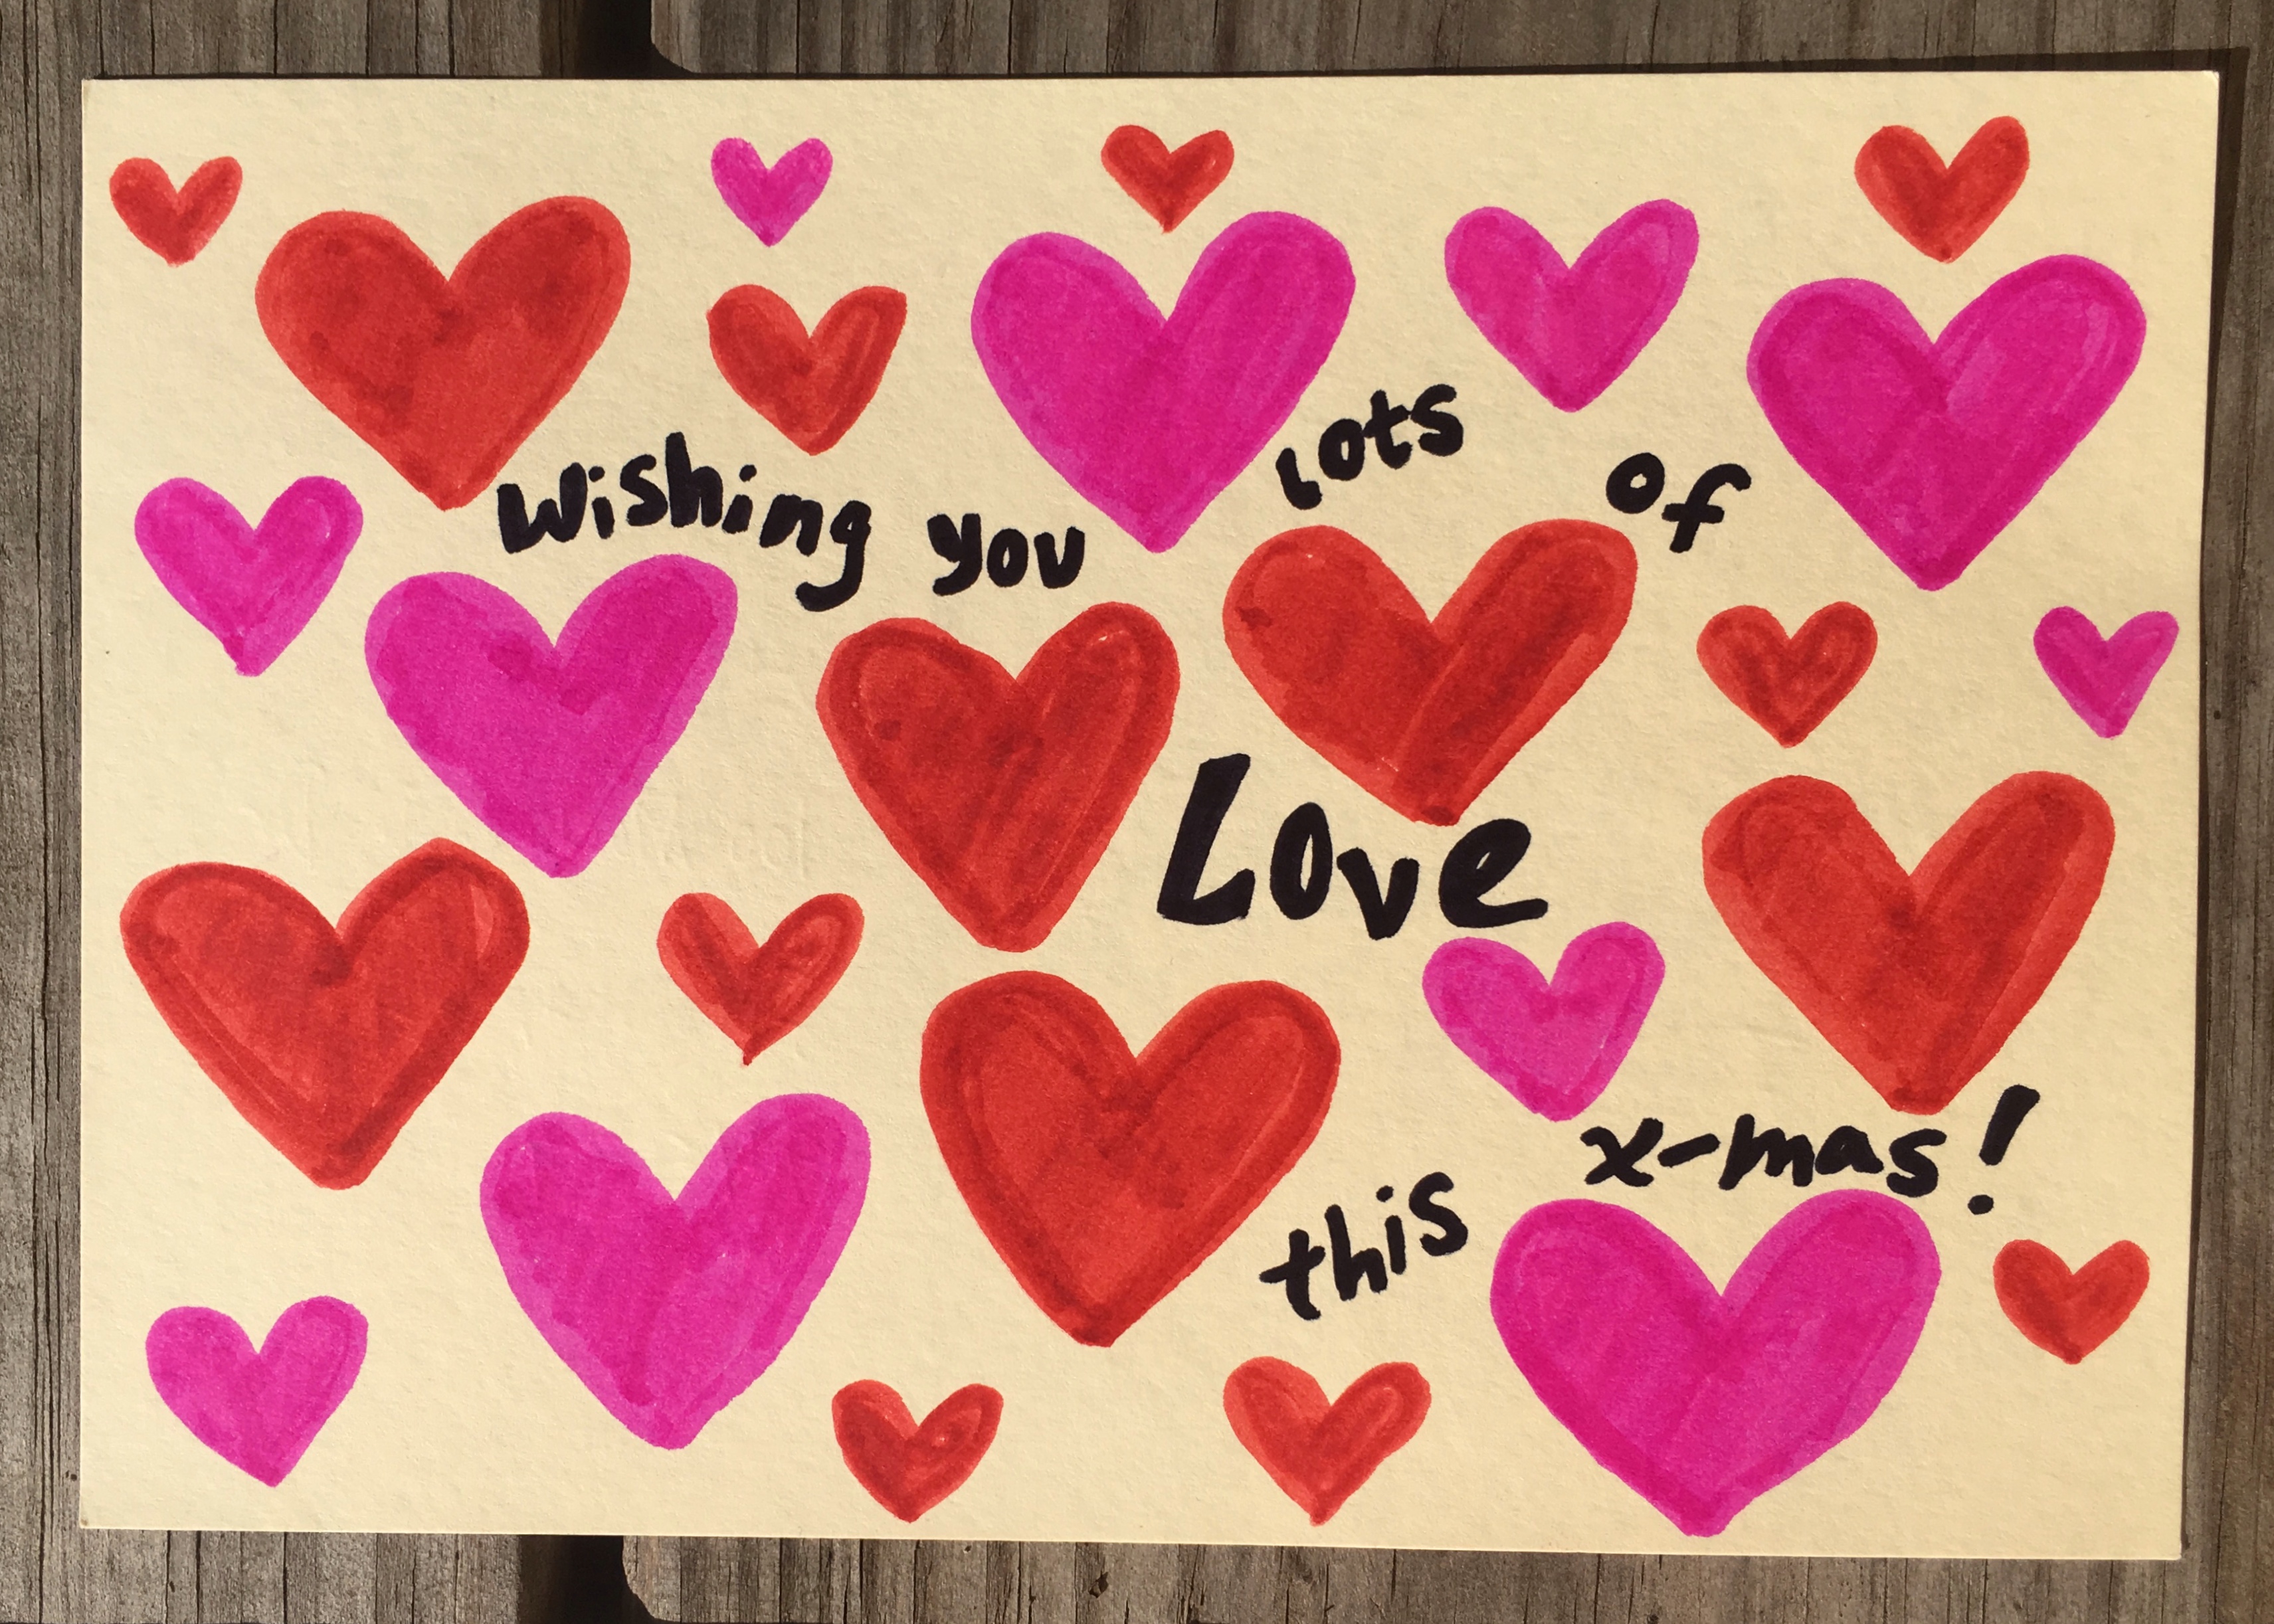 Wishing you lots of
Love
this x-mas!